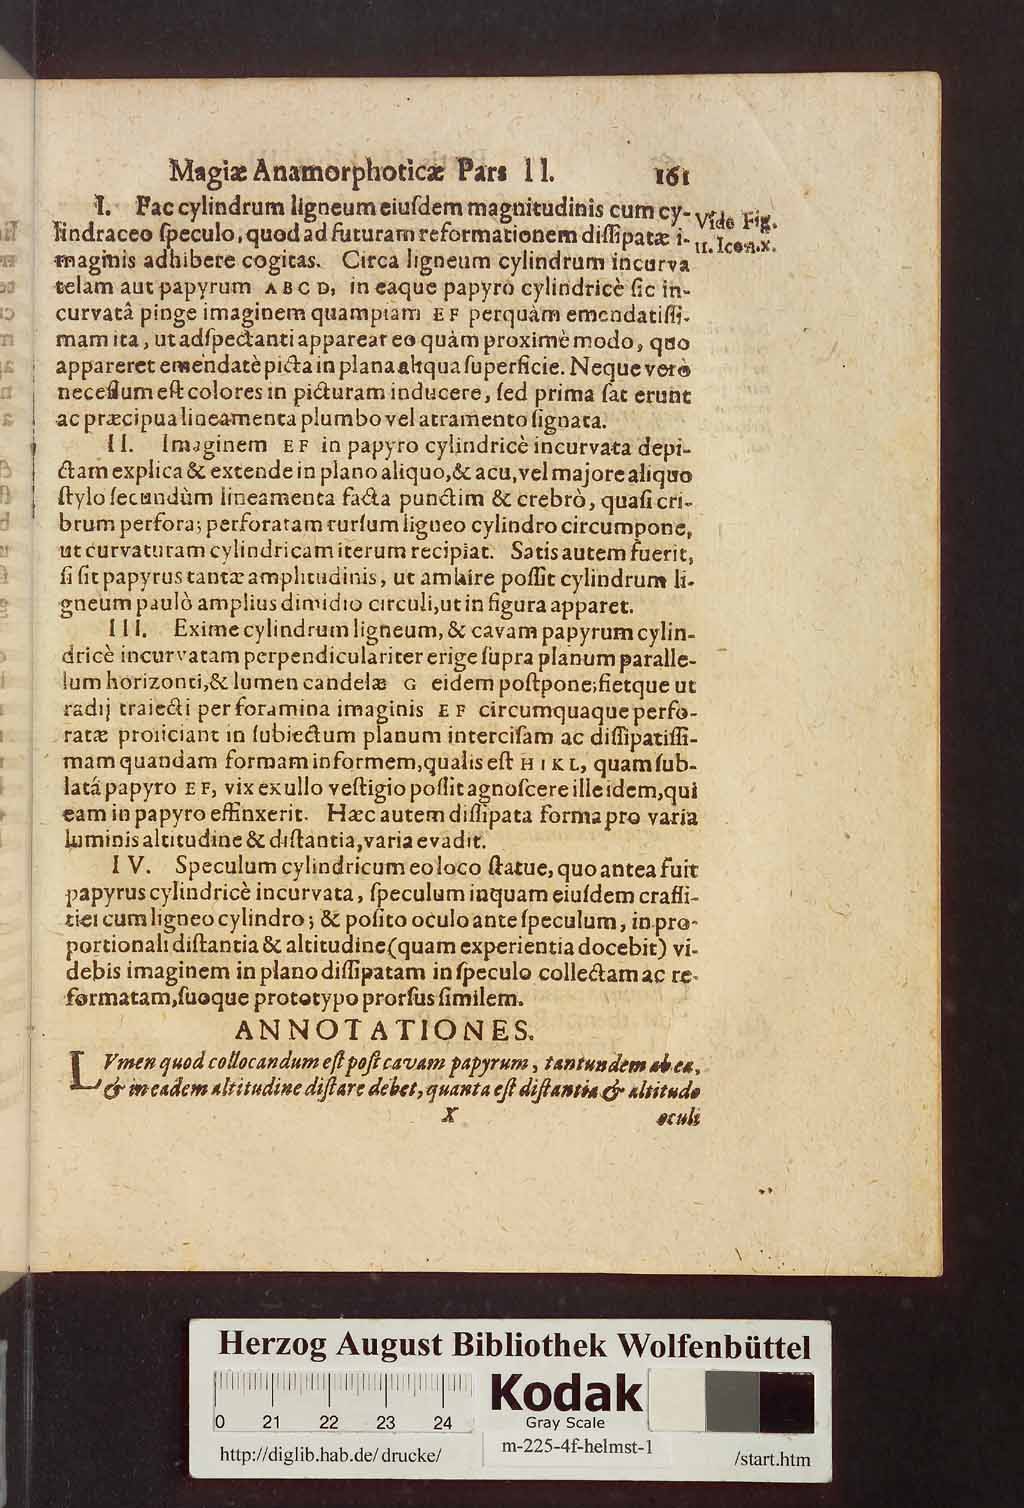 Magiæ Anamorphoticæ Pars II. 161
I. Fac cylindrum ligneum eiuſdem magnitudinis cum cy-
lindraceo ſpeculo, quod ad futuram reformationem diſſipatæ i-
maginis adhibere cogitas. Circa ligneum cylindrum incurva
telam aut papyrum ABCD, in eaque papyro cylindricè ſic in-
curvatâ pinge imaginem quampiam EF perquàm emendatiſſi-
mam ita, ut adſpectanti appareat eo quàm proximè modo, quo
appareret emendatè picta in plana aliqua ſuperficie. Neque verò
neceſſum eſt colores in picturam inducere, ſed prima ſat erunt
ac præcipua lineamenta plumbo vel atramento ſignata.
Vide Fig.
11. Icon. x.
II. Imaginem EF in papyro cylindricè incurvata depi-
ctam explica & extende in plano aliquo, & acu, vel majore aliquo
ſtylo ſecundùm lineamenta facta punctim & crebrò, quaſi cri-
brum perfora; perforatam rurſum ligneo cylindro circumpone,
ut curvaturam cylindricam iterum recipiat. Satis autem fuerit,
ſi ſit papyrus tantæ amplitudinis, ut ambire poſſit cylindrum li-
gneum paulò amplius dimidio circuli, ut in figura apparet.
III. Exime cylindrum ligneum, & cavam papyrum cylin-
dricè incurvatam perpendiculariter erige ſupra planum paralle-
lum horizonti, & lumen candelæ G eidem poſtpone; fietque ut
radij traiecti per foramina imaginis EF circumquaque perfo-
ratæ proiiciant in ſubiectum planum interciſam ac diſſipatiſſi-
mam quandam formam informem, qualis eſt HIKL, quam ſub-
latá papyro EF, vix ex ullo veſtigio poſſit agnoſcere ille idem, qui
eam in papyro effinxerit. Hæc autem diſſipata forma pro varia
luminis altitudine & diſtantia, varia evadit.
IV. Speculum cylindricum eo loco ſtatue, quo antea fuit
papyrus cylindricè incurvata, ſpeculum inquam eiuſdem craſſi-
tiei cum ligneo cylindro; & poſito oculo ante ſpeculum, in pro-
portionali diſtantia & altitudine (quam experientia docebit) vi-
debis imaginem in plano diſſipatam in ſpeculo collectam ac re-
formatam, ſuoque prototypo prorſus ſimilem.
ANNOTATIONES.
LVmen quod collocandum eſt poſt cavam papyrum, tantundem ab ea,
& in eadem altitudine diſtare debet, quanta eſt diſtantia & altitudo
X oculi
Herzog August Bibliothek Wolfenbüttel
0 21 22 23 24
Kodak
Gray Scale
m-225-4f-helmst-1
http://diglib.hab.de/ drucke/
/start.htm